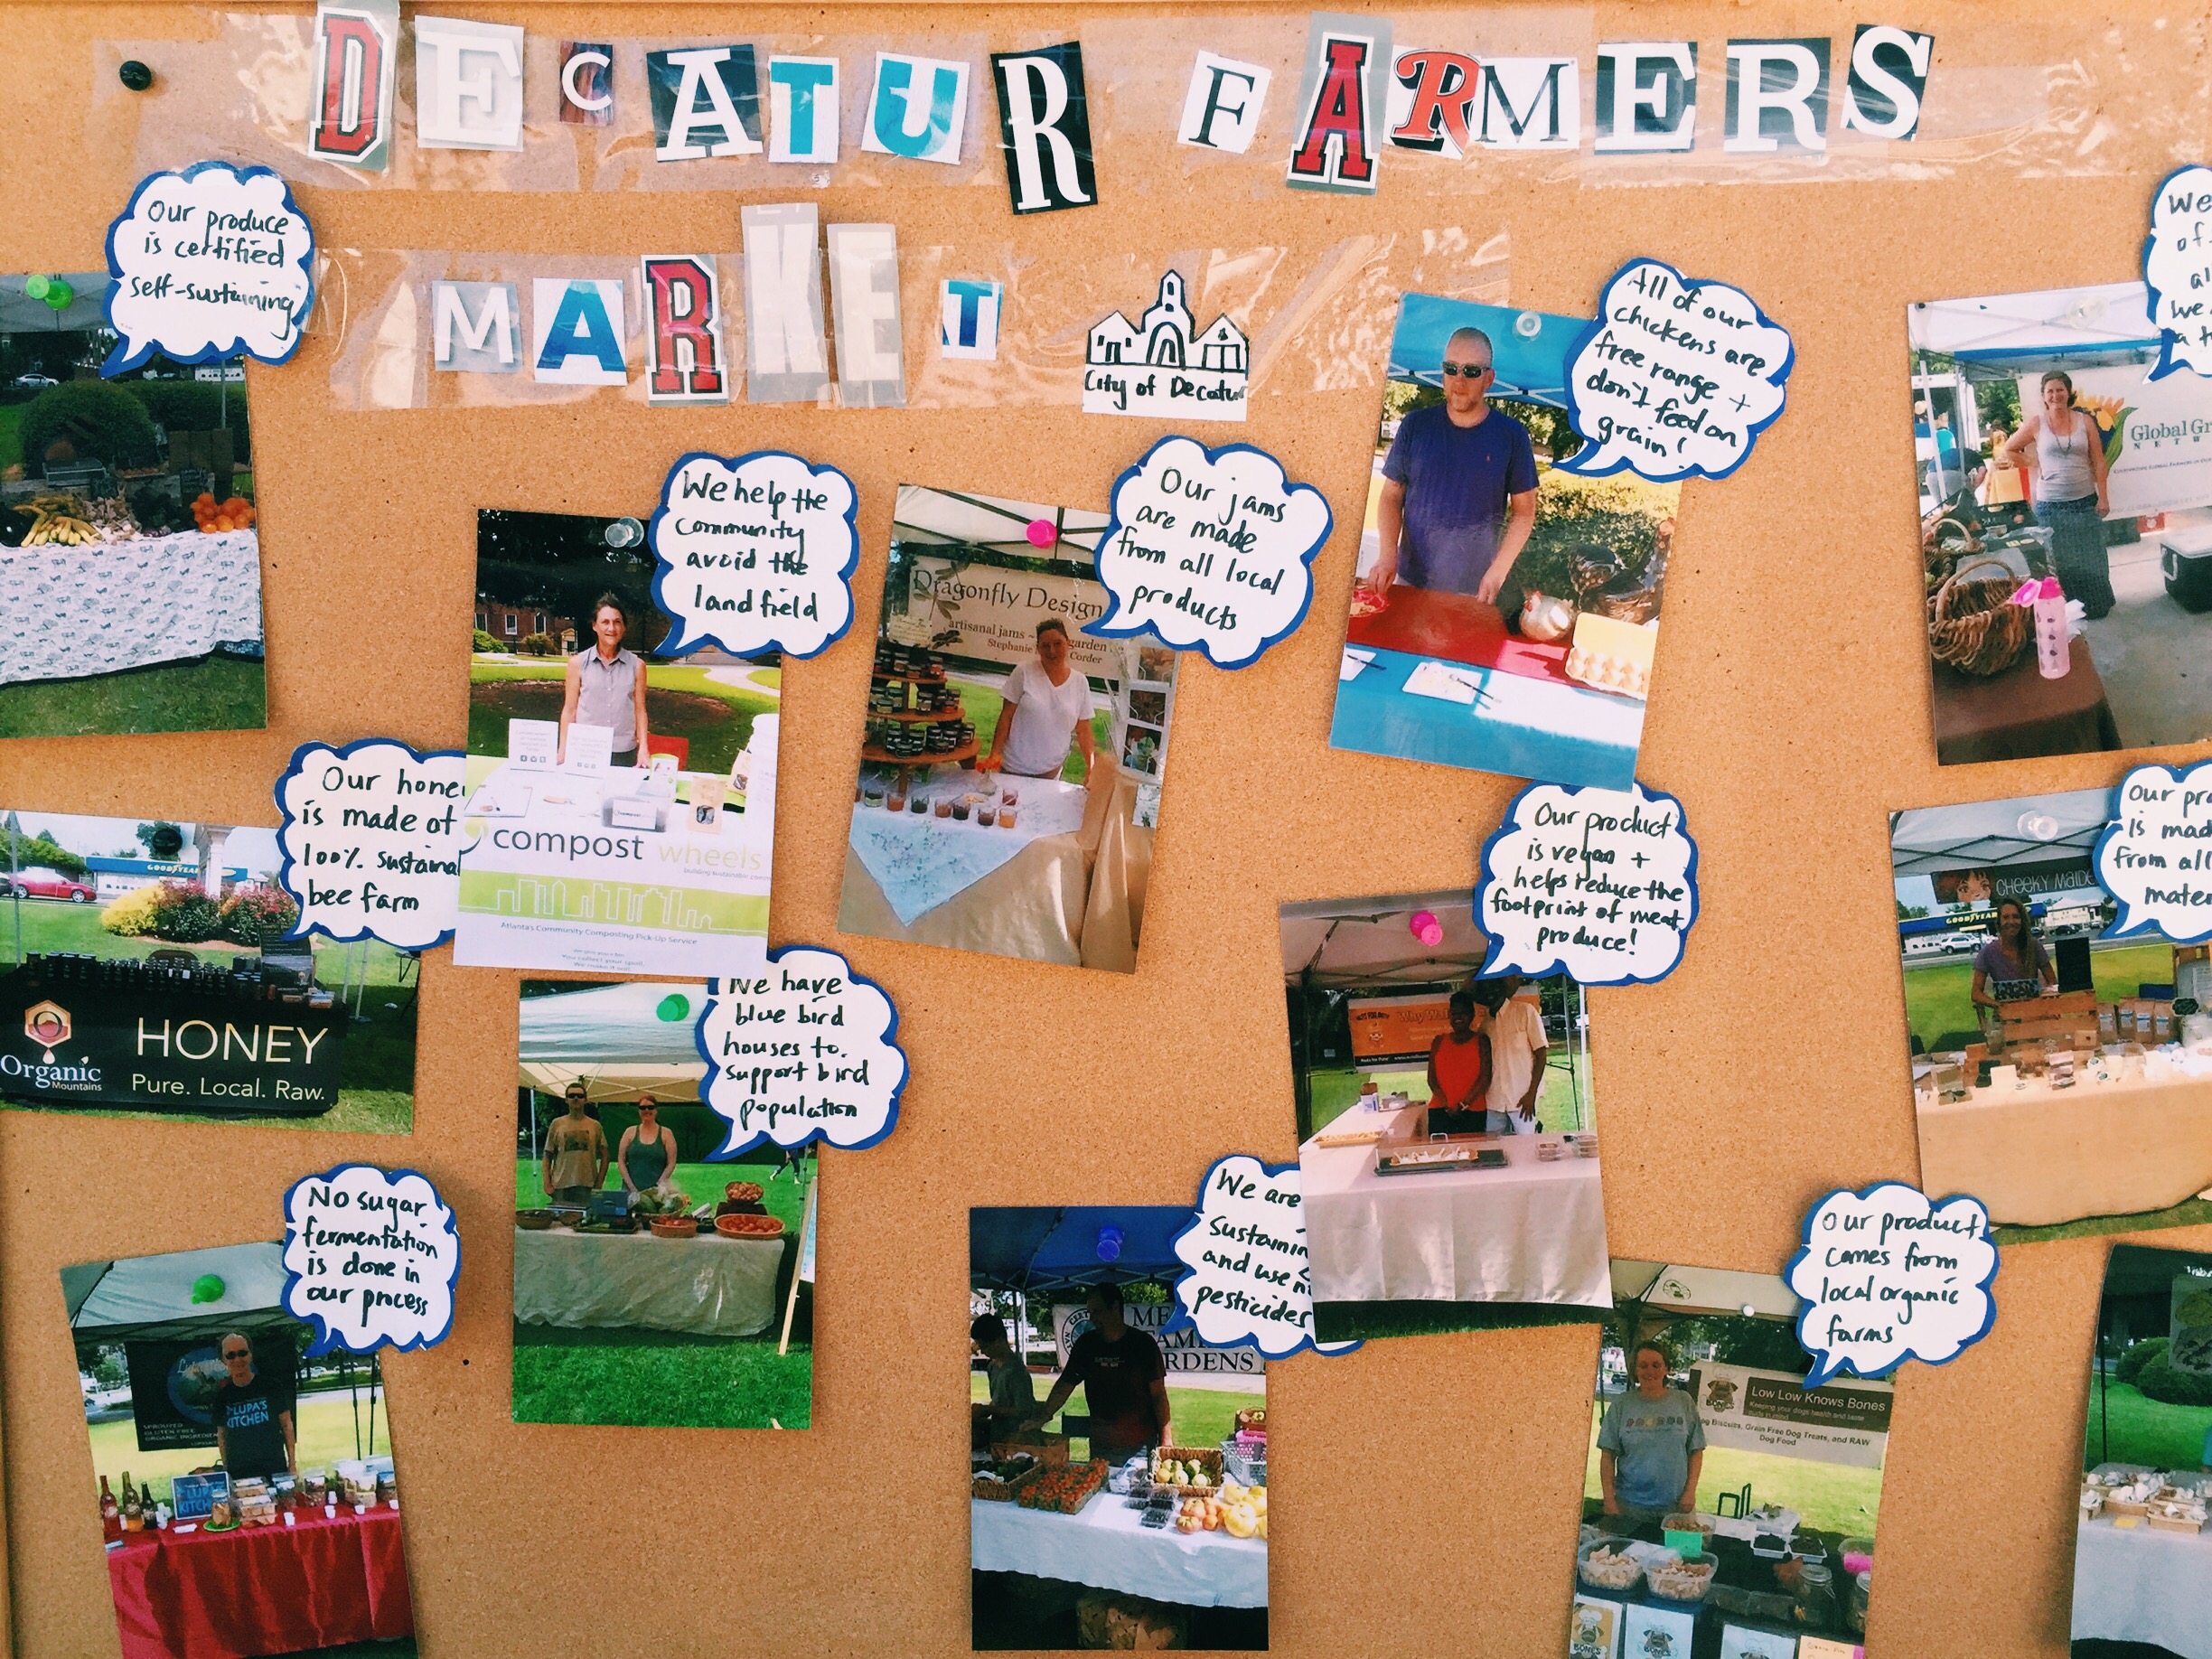 DECATUR FARMERS
MARKET
City of Decatur
Our produce
is certified
self-sustaining
We help the
community
avoid the
landfield
Our jams
are made
from all local
products
All of our
chickens are
free range +
don't feed on
grain!
We
of
al
we
a
Global Gr
NETW
Dragonfly Design
artisanal jams ~ garden
Stephanie Corder
compost wheels
Atlanta's Community Composting Pick-Up Service
Our hone
is made of
100% sustaina
bee farm
GOODYEAR
HONEY
Pure. Local. Raw.
Organic
Mountains
We have
blue bird
houses to
support bird
population
Our product
is vegan +
helps reduce the
footprint of meat
produce!
Our pro
is mad
from all
mater
CHEEKY MAIDE
GOODYEAR
No sugar
fermentation
is done in
our process
LUPA'S
KITCHEN
We are
sustainin
and use n
pesticides
ME
RDENS
Our product
comes from
local organic
farms
Low Low Knows Bones
Keeping your dogs health and taste
buds in mind
og Biscuits, Grain Free Dog Treats, and RAW
Dog Food
BONES